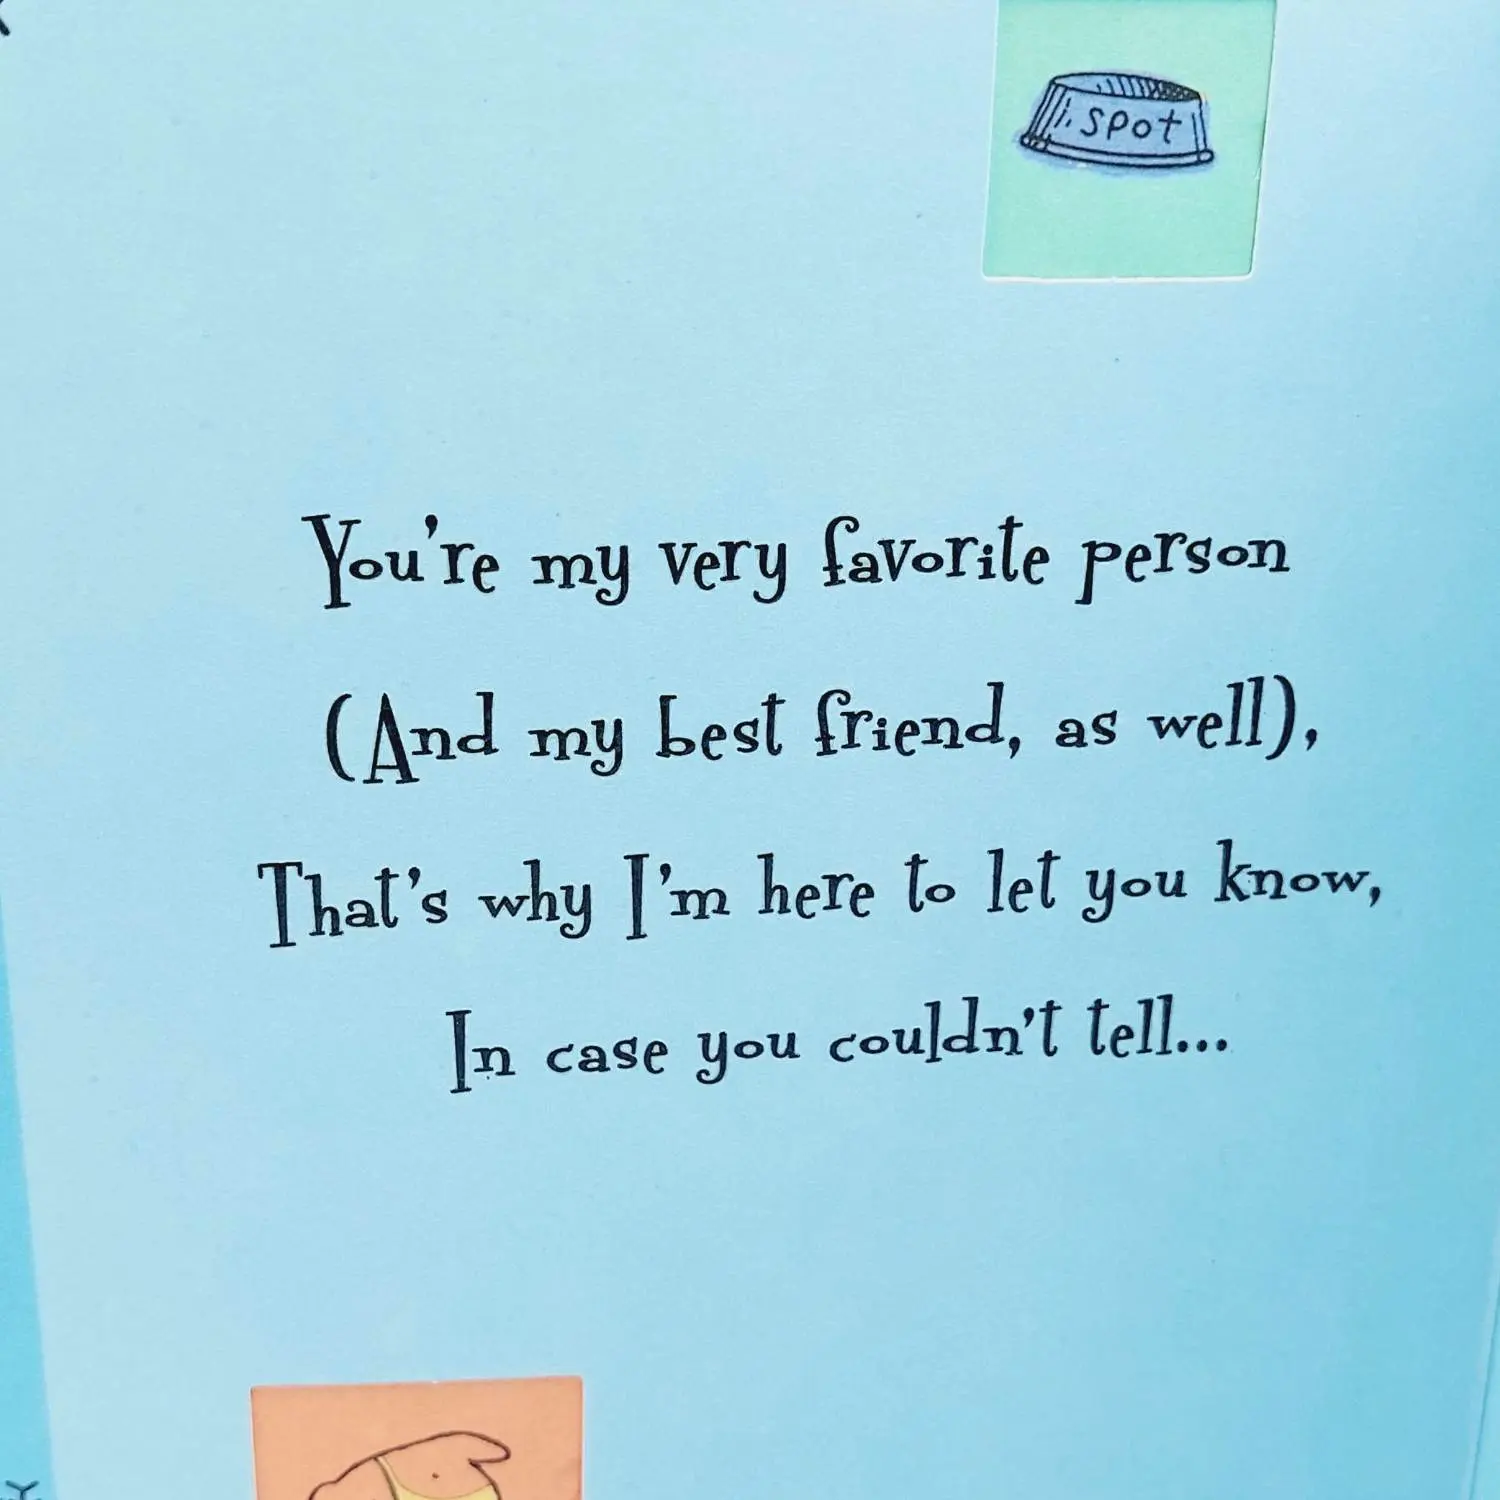 Spot
You're my very favorite person
(And my best friend, as well),
That's why I'm here to let you know,
In case you couldn't tell...